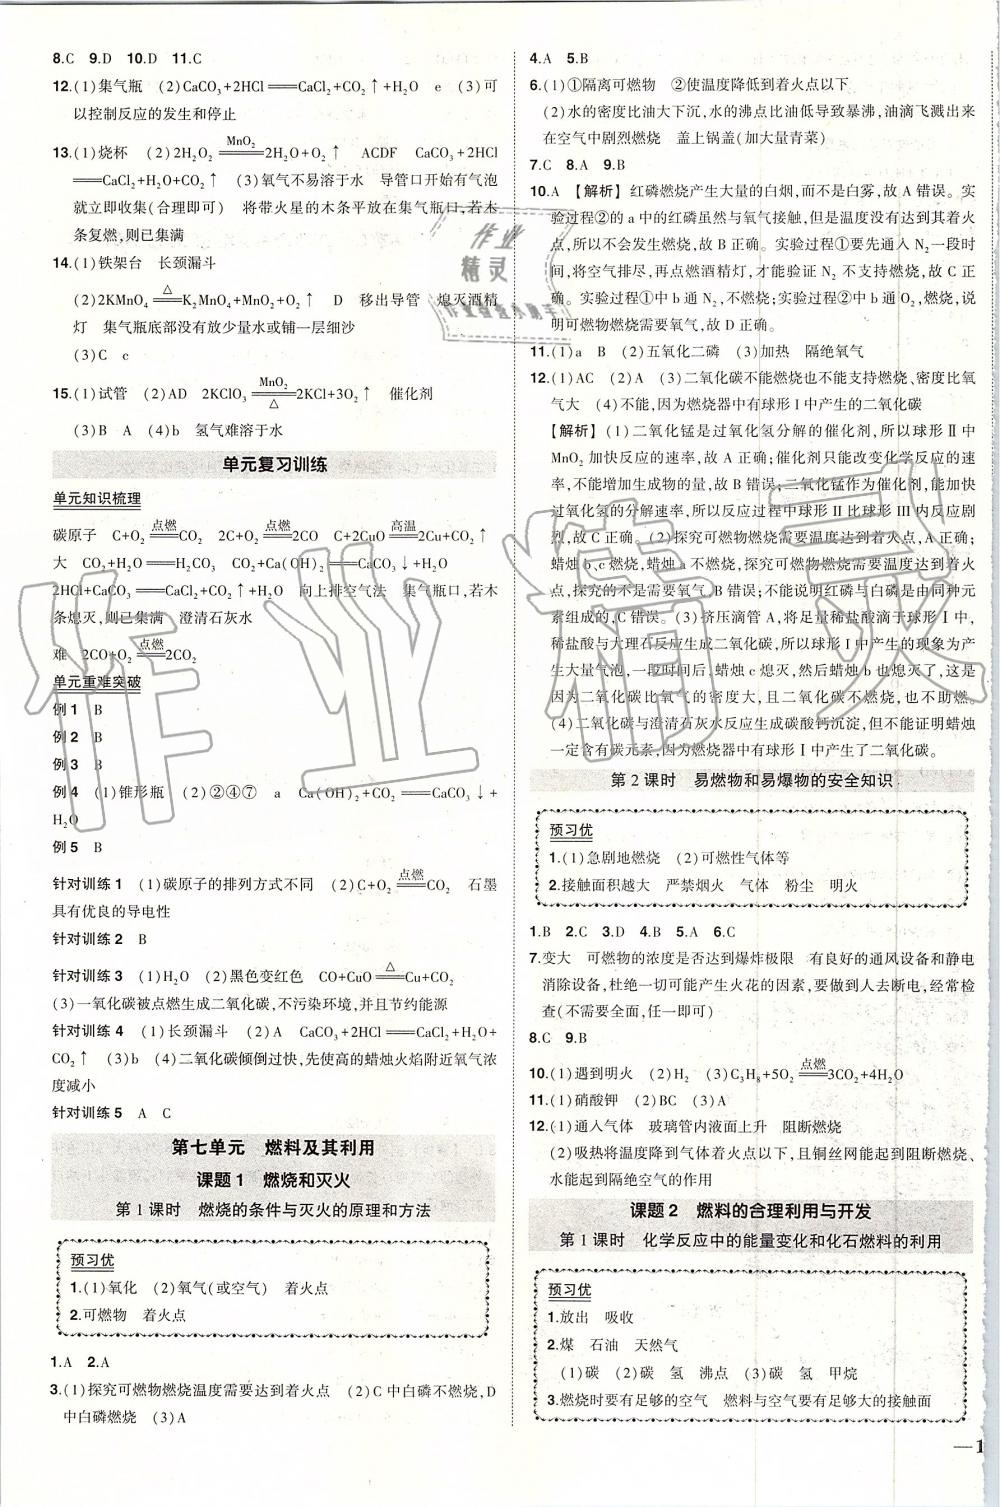 8.C 9.D 10.D 11.C
12.(1)集气瓶 (2)CaCO₃+2HCl══CaCl₂+CO₂↑+H₂O e (3)可
以控制反应的发生和停止
13.(1)烧杯 (2)2H₂O₂ ══MnO₂══ 2H₂O+O₂↑ ACDF CaCO₃+2HCl
══CaCl₂+H₂O+CO₂↑ (3)氧气不易溶于水 导管口开始有气泡
就立即收集(合理即可) 将带火星的木条平放在集气瓶口,若木
条复燃,则已集满
14.(1)铁架台 长颈漏斗
(2)2KMnO₄ ══△══ K₂MnO₄+MnO₂+O₂↑ D 移出导管 熄灭酒精
灯 集气瓶底部没有放少量水或铺一层细沙
(3)C c
15.(1)试管 (2)AD 2KClO₃ ══MnO₂/△══ 2KCl+3O₂↑ 催化剂
(3)B A (4)b 氢气难溶于水
单元复习训练
单元知识梳理
碳原子 C+O₂ ══点燃══ CO₂ 2C+O₂ ══点燃══ 2CO C+2CuO ══高温══ 2Cu+CO₂↑
大 CO₂+H₂O══H₂CO₃ CO₂+Ca(OH)₂══CaCO₃↓+H₂O
2HCl+CaCO₃══CaCl₂+CO₂↑+H₂O 向上排空气法 集气瓶口,若木
条熄灭,则已集满 澄清石灰水
难 2CO+O₂ ══点燃══ 2CO₂
单元重难突破
例1 B
例2 B
例3 B
例4 (1)锥形瓶 (2)②④⑦ a Ca(OH)₂+CO₂══CaCO₃↓+
H₂O
例5 B
针对训练1 (1)碳原子的排列方式不同 (2)C+O₂ ══点燃══ CO₂ 石墨
具有优良的导电性
针对训练2 B
针对训练3 (1)H₂O (2)黑色变红色 CO+CuO ══△══ Cu+CO₂
(3)一氧化碳被点燃生成二氧化碳,不污染环境,并且节约能源
针对训练4 (1)长颈漏斗 (2)A CaCO₃+2HCl══CaCl₂+H₂O+
CO₂↑ (3)b (4)二氧化碳倾倒过快,先使高的蜡烛火焰附近氧气浓
度减小
针对训练5 A C
第七单元 燃料及其利用
课题1 燃烧和灭火
第1课时 燃烧的条件与灭火的原理和方法
预习优
1.(1)氧化 (2)氧气(或空气) 着火点
2.可燃物 着火点
1.A 2.A
3.(1)探究可燃物燃烧温度需要达到着火点 (2)C中白磷不燃烧,D
中白磷燃烧 (3)A
4.A 5.B
6.(1)①隔离可燃物 ②使温度降低到着火点以下
(2)水的密度比油大下沉,水的沸点比油低导致暴沸,油滴飞溅出来
在空气中剧烈燃烧 盖上锅盖(加大量青菜)
7.C 8.A 9.B
10.A 【解析】 红磷燃烧产生大量的白烟,而不是白雾,故A错误。实
验过程②的a中的红磷虽然与氧气接触,但是温度没有达到其着火
点,所以不会发生燃烧,故B正确。实验过程①要先通入N₂一段时
间,将空气排尽,再点燃酒精灯,才能验证N₂不支持燃烧,故C正
确。实验过程①中b通N₂,不燃烧;实验过程②中b通O₂,燃烧,说
明可燃物燃烧需要氧气,故D正确。
11.(1)a B (2)五氧化二磷 (3)加热 隔绝氧气
12.(1)AC (2)A (3)二氧化碳不能燃烧也不能支持燃烧、密度比氧
气大 (4)不能,因为燃烧器中有球形Ⅰ中产生的二氧化碳
【解析】 (1)二氧化锰是过氧化氢分解的催化剂,所以球形Ⅱ中
MnO₂加快反应的速率,故A正确;催化剂只能改变化学反应的速
率,不能增加生成物的量,故B错误;二氧化锰作为催化剂,能加快
过氧化氢的分解速率,所以反应过程中球形Ⅱ比球形Ⅲ内反应剧
烈,故C正确。(2)探究可燃物燃烧需要温度达到着火点,A正确;
蜡烛b、c燃烧,蜡烛a不燃烧,探究可燃物燃烧需要温度达到着火
点,探究的不是需要氧气,B错误;通过红磷与白磷是由同种元
素组成的,C错误。(3)挤压滴管A,将足量稀盐酸滴于球形Ⅰ中,
稀盐酸与大理石反应生成二氧化碳,所以球形Ⅰ中产生的现象为产
生大量气泡,一段时间后,蜡烛c熄灭,然后蜡烛b也熄灭了,这是
因为二氧化碳比氧气的密度大,且二氧化碳不燃烧,也不助燃。
(4)二氧化碳与澄清石灰水反应生成碳酸钙沉淀,但不能证明蜡烛
一定含有碳元素,因为燃烧器中有球形Ⅰ中产生了二氧化碳。
第2课时 易燃物和易爆物的安全知识
预习优
1.(1)急剧地燃烧 (2)可燃性气体等
2.接触面积越大 严禁烟火 气体 粉尘 明火
1.B 2.C 3.D 4.B 5.A 6.C
7.变大 可燃物的浓度是否达到爆炸极限 有良好的通风设备和静电
消除设备,杜绝一切可能产生火花的因素,要做到人去断电,经常检
查(不需要全面,任一即可)
8.C 9.B
10.(1)遇到明火 (2)H₂ (3)C₃H₈+5O₂ ══点燃══ 3CO₂+4H₂O
11.(1)硝酸钾 (2)BC (3)A
12.(1)通入气体 玻璃管内液面上升 阻断燃烧
(2)吸热将温度降到气体着火点以下,且铜丝网能起到阻断燃烧、
水能起到隔绝空气的作用
课题2 燃料的合理利用与开发
第1课时 化学反应中的能量变化和化石燃料的利用
预习优
1.放出 吸收
2.煤 石油 天然气
(1)碳 (2)碳 氢 沸点 (3)碳 氢 甲烷
3.燃烧时要有足够的空气 燃料与空气要有足够大的接触面
— 1
作业精灵
作业精灵